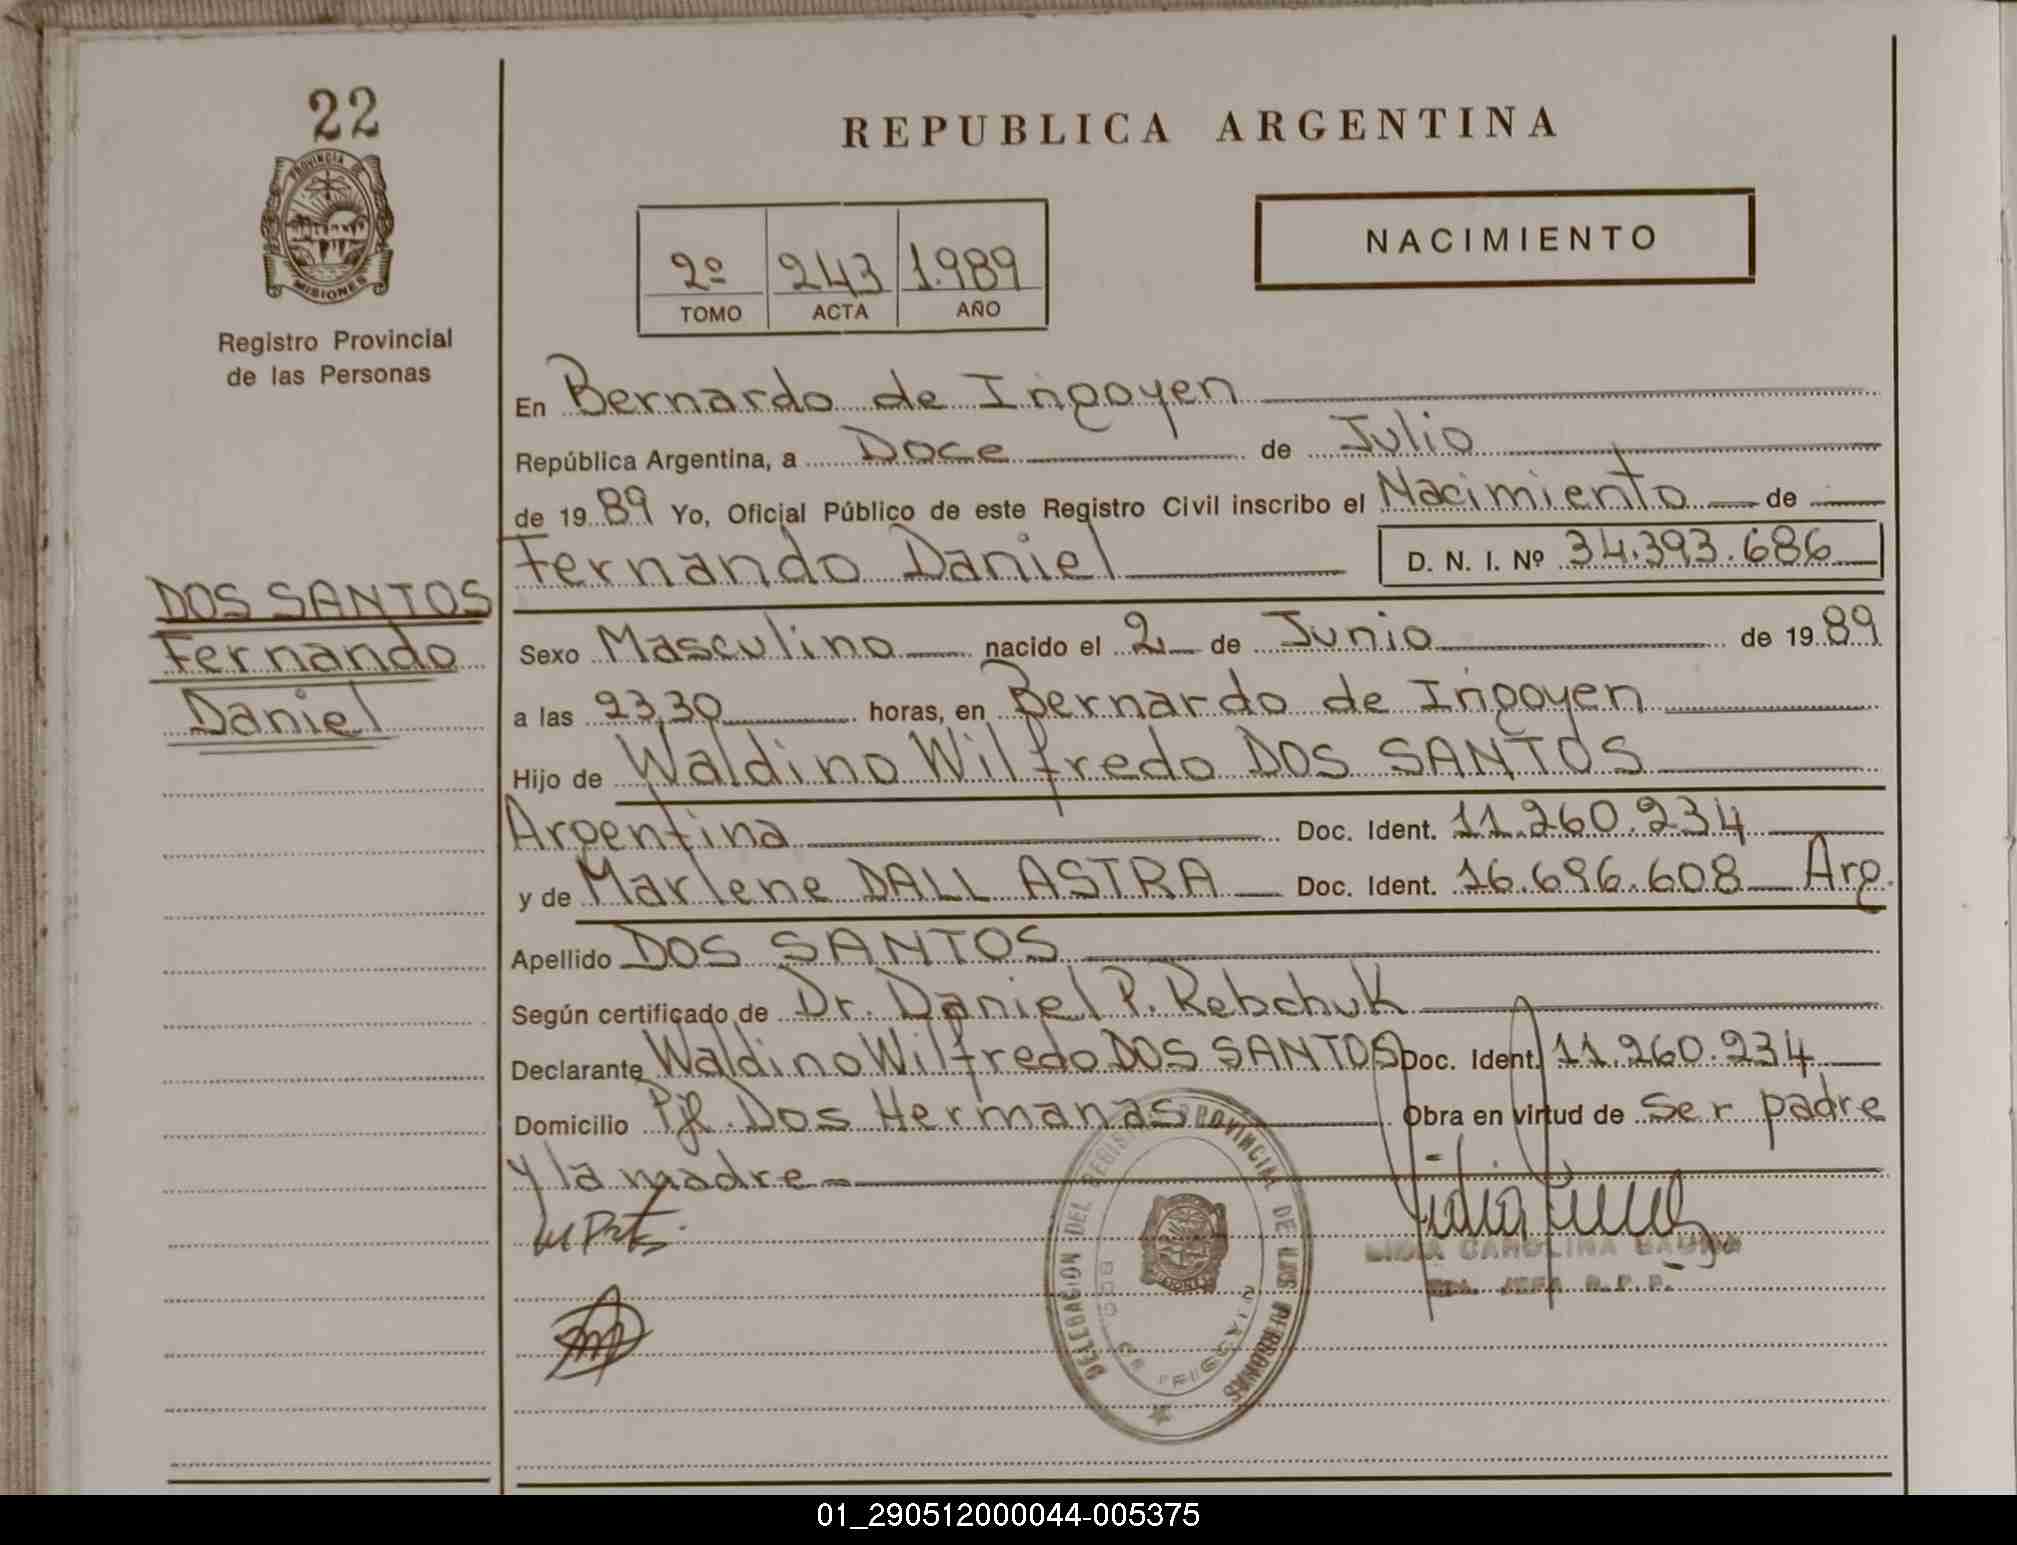 22
PROVINCIA DE
MISIONES
Registro Provincial
de las Personas
DOS SANTOS
Fernando
Daniel
REPUBLICA ARGENTINA
2º 243 1.989
TOMO ACTA AÑO
NACIMIENTO
En Bernardo de Irigoyen
República Argentina, a Doce de Julio
de 1989 Yo, Oficial Público de este Registro Civil inscribo el Nacimiento de
Fernando Daniel D. N. I. Nº 34.393.686
Sexo Masculino nacido el 2 de Junio de 1989
a las 23,30 horas, en Bernardo de Irigoyen
Hijo de Waldino Wilfredo DOS SANTOS
Argentina Doc. Ident. 11.260.234
y de Marlene DALL ASTRA Doc. Ident. 16.696.608 Arg.
Apellido DOS SANTOS
Según certificado de Dr. Daniel P. Rebchuk
Declarante Waldino Wilfredo DOS SANTOS Doc. Ident. 11.260.234
Domicilio Pje. Dos Hermanas Obra en virtud de Ser padre
y la madre
DELEGACION DEL REGISTRO PROVINCIAL DE LAS PERSONAS
LIDIA CAROLINA
JEFA R.P.P.
01_290512000044-005375